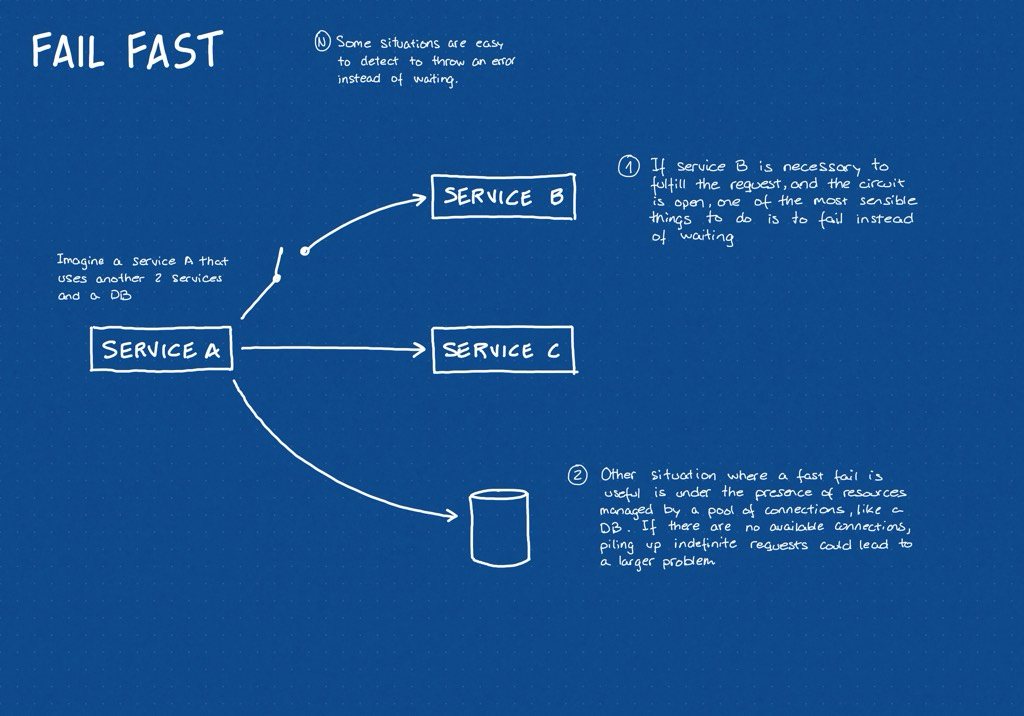 FAIL FAST
N Some situations are easy
to detect to throw an error
instead of waiting.
1 If service B is necessary to
fulfill the request, and the circuit
is open, one of the most sensible
things to do is to fail instead
of waiting
SERVICE B
Imagine a service A that
uses another 2 services
and a DB
SERVICE A
SERVICE C
2 Other situation where a fast fail is
useful is under the presence of resources
managed by a pool of connections, like a
DB. If there are no available connections,
piling up indefinite requests could lead to
a larger problem